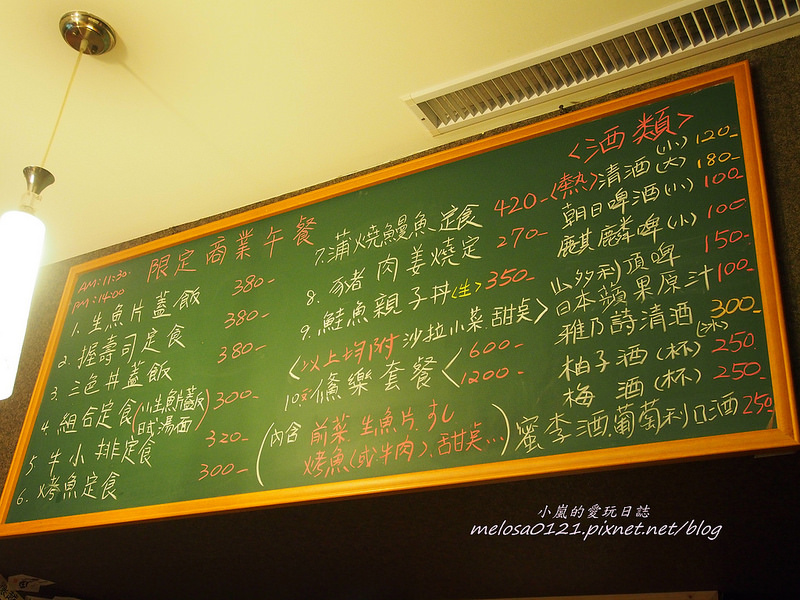 AM:11:30- 限定商業午餐
PM:14:00
1. 生魚片蓋飯 380-
2. 握壽司定食 380-
3. 三色丼蓋飯 380-
4. 組合定食(小生魚片蓋飯 300-
味噌湯面)
5. 牛小排定食 320-
6. 烤魚定食 300-
7. 蒲燒鰻魚定食 420-
8. 豬肉姜燒定 270-
9. 鮭魚親子丼(生) 350-
<以上均附 沙拉.小菜.甜点>
10. 樂套餐< 600-
1200-
(內含 前菜.生魚片.すし
烤魚(或牛肉).甜点...)
<酒類>
(熱)清酒(小) 120-
(大) 180-
朝日啤酒(小) 100
麒麟啤(小) 100
三多利頂啤 150-
日本蘋果原汁 100-
雅乃詩清酒 300-
柚子酒(杯) 250
梅 酒(杯) 250-
蜜李酒.葡萄利口酒 250-
小嵐的愛玩日誌
melosa0121.pixnet.net/blog